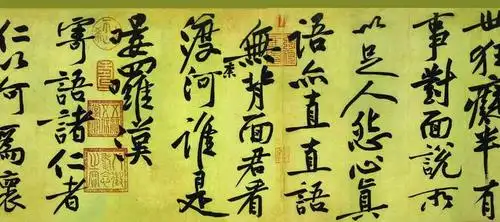 世狂癡半有
事對面說所
以足人怨心真
語亦直直語
無背面君看
渡奈河誰是
嘍羅漢
寄語諸仁者
仁以何爲懷